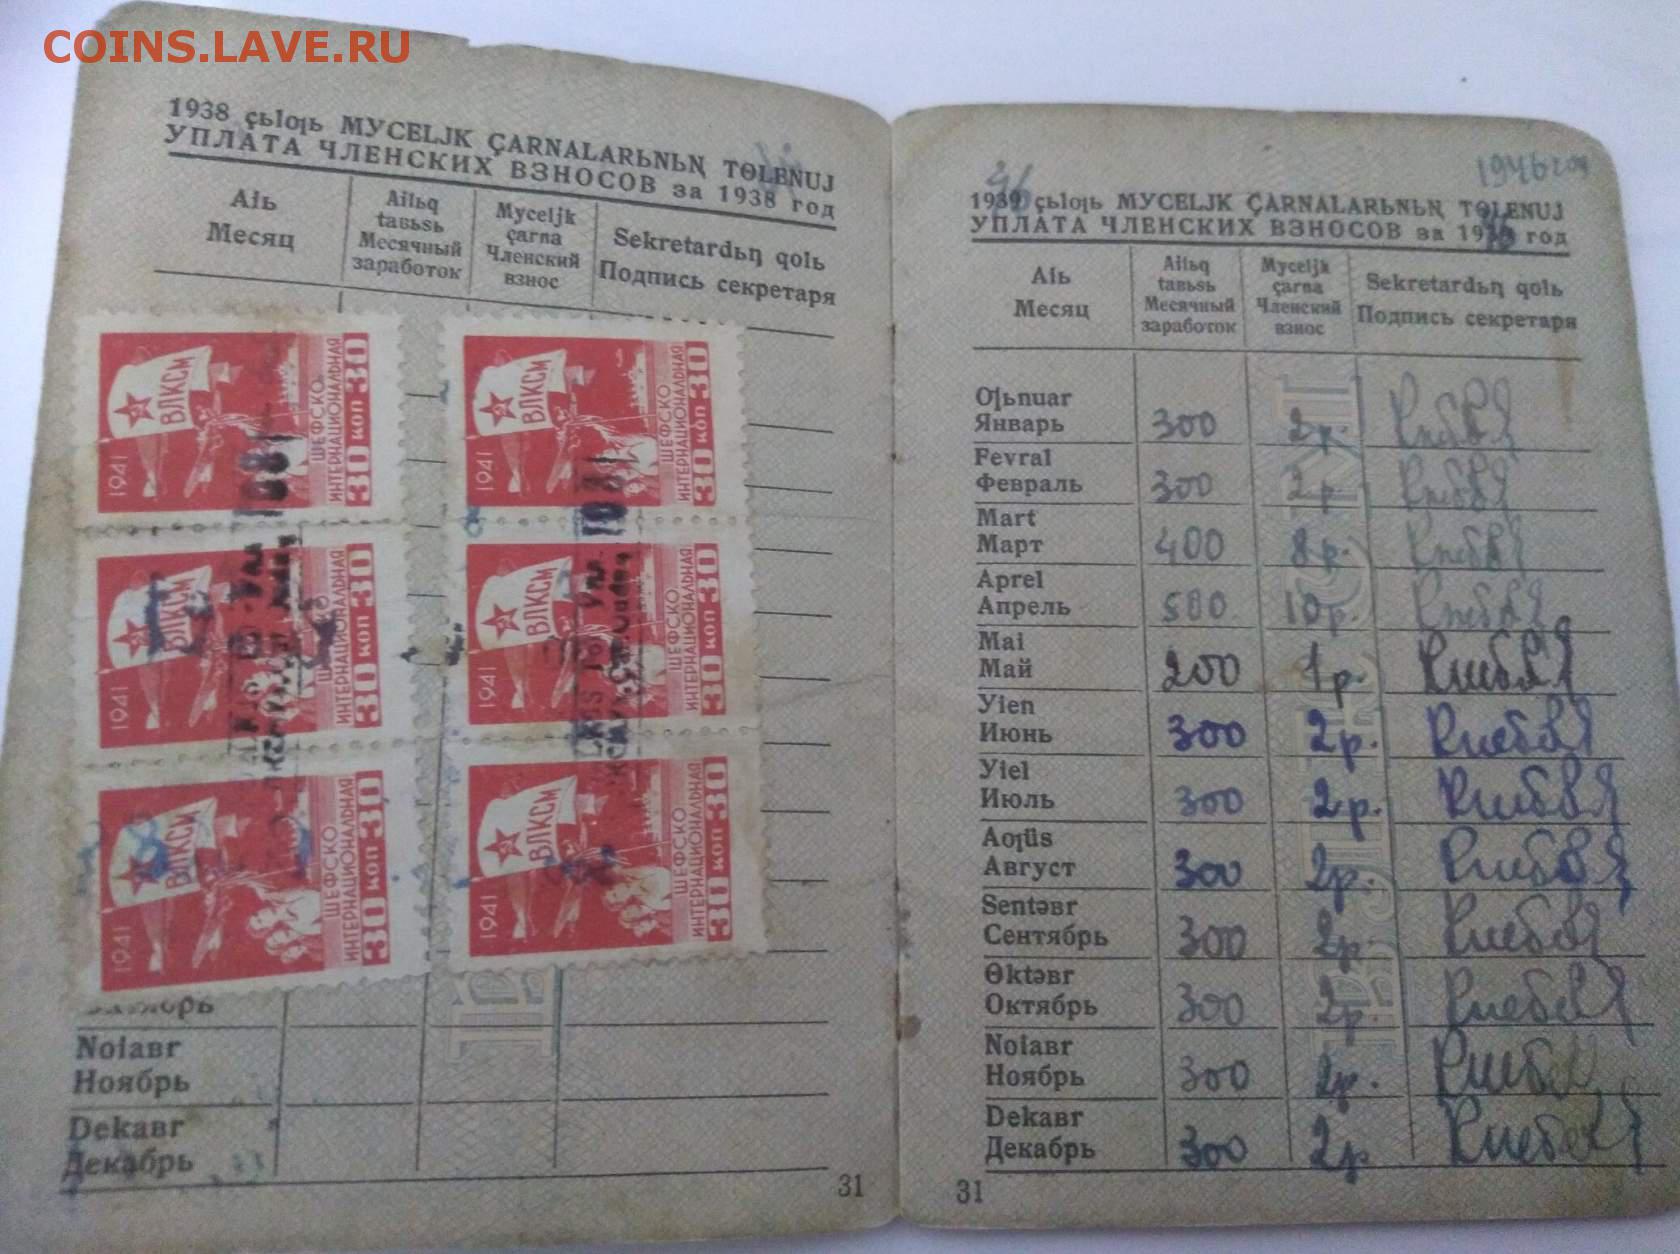 COINS.LAVE.RU
1938 çьlƣь MYCELJK ÇARNALARЬNЬꞐ TɵLENUJ
УПЛАТА ЧЛЕНСКИХ ВЗНОСОВ за 1938 год
Aiь
Месяц
Ailьq
taвьsь
Месячный
заработок
Myceljk
çarna
Членский
взнос
Sekretardьꞑ qolь
Подпись секретаря
1941
ВЛКСМ
ШЕФСКО
ИНТЕРНАЦИОНАЛЬНАЯ
30 коп 30
1941
ВЛКСМ
ШЕФСКО
ИНТЕРНАЦИОНАЛЬНАЯ
30 коп 30
1941
ВЛКСМ
ИНТЕРНАЦИОНАЛЬНАЯ
30 коп 30
1941
ВЛКСМ
ШЕФСКО
ИНТЕРНАЦИОНАЛЬНАЯ
30 коп 30
1941
ВЛКСМ
ШЕФСКО
ИНТЕРНАЦИОНАЛЬНАЯ
30 коп 30
1941
ВЛКСМ
ШЕФСКО
ИНТЕРНАЦИОНАЛЬНАЯ
30 коп 30
Noiaвr
Ноябрь
Dekaвr
Декабрь
31
46
1946 год
1939 çьlƣь MYCELJK ÇARNALARЬNЬꞐ TɵLENUJ
УПЛАТА ЧЛЕНСКИХ ВЗНОСОВ за год
Aiь
Месяц
Ailьq
taвьsь
Месячный
заработок
Myceljk
çarna
Членский
взнос
Sekretardьꞑ qolь
Подпись секретаря
Oƣьnuar
Январь 300 2р.
Fevral
Февраль 300 2р
Mart
Март 400 8р.
Aprel
Апрель 500 10р.
Mai
Май 200 1р.
Yien
Июнь 300 2р.
Yiel
Июль 300 2р.
Aoƣüs
Август 300 2р.
Sentəвr
Сентябрь 300 2р.
Ɵktəвr
Октябрь 300 2р.
Noiaвr
Ноябрь 300 2р.
Dekaвr
Декабрь 300 2р
31